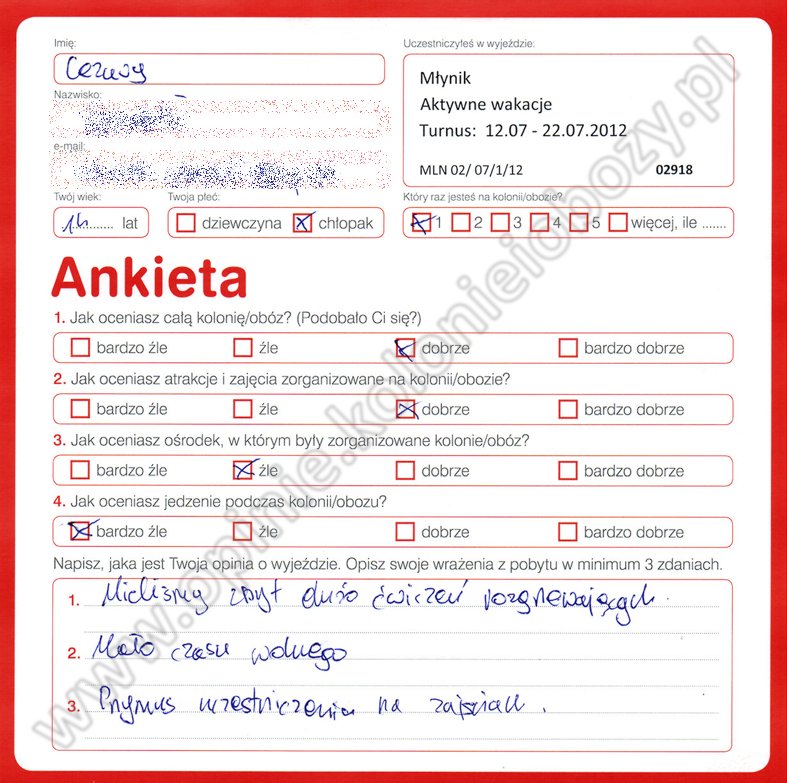 Imię:
Cezary
Uczestniczyłeś w wyjeździe:
Młynik
Aktywne wakacje
Turnus: 12.07 - 22.07.2012
MLN 02/ 07/1/12 02918
Nazwisko:
e-mail:
Twój wiek:
14 lat
Twoja płeć:
dziewczyna chłopak
Który raz jesteś na kolonii/obozie?
1 2 3 4 5 więcej, ile .......
Ankieta
1. Jak oceniasz całą kolonię/obóz? (Podobało Ci się?)
bardzo źle źle dobrze bardzo dobrze
2. Jak oceniasz atrakcje i zajęcia zorganizowane na kolonii/obozie?
bardzo źle źle dobrze bardzo dobrze
3. Jak oceniasz ośrodek, w którym były zorganizowane kolonie/obóz?
bardzo źle źle dobrze bardzo dobrze
4. Jak oceniasz jedzenie podczas kolonii/obozu?
bardzo źle źle dobrze bardzo dobrze
Napisz, jaka jest Twoja opinia o wyjeździe. Opisz swoje wrażenia z pobytu w minimum 3 zdaniach.
1. Mieliśmy zbyt dużo ćwiczeń rozgrzewających.
2. Mało czasu wolnego
3. Przymus uczestniczenia na zajęciach.
www.opinie.kolonieiobozy.pl